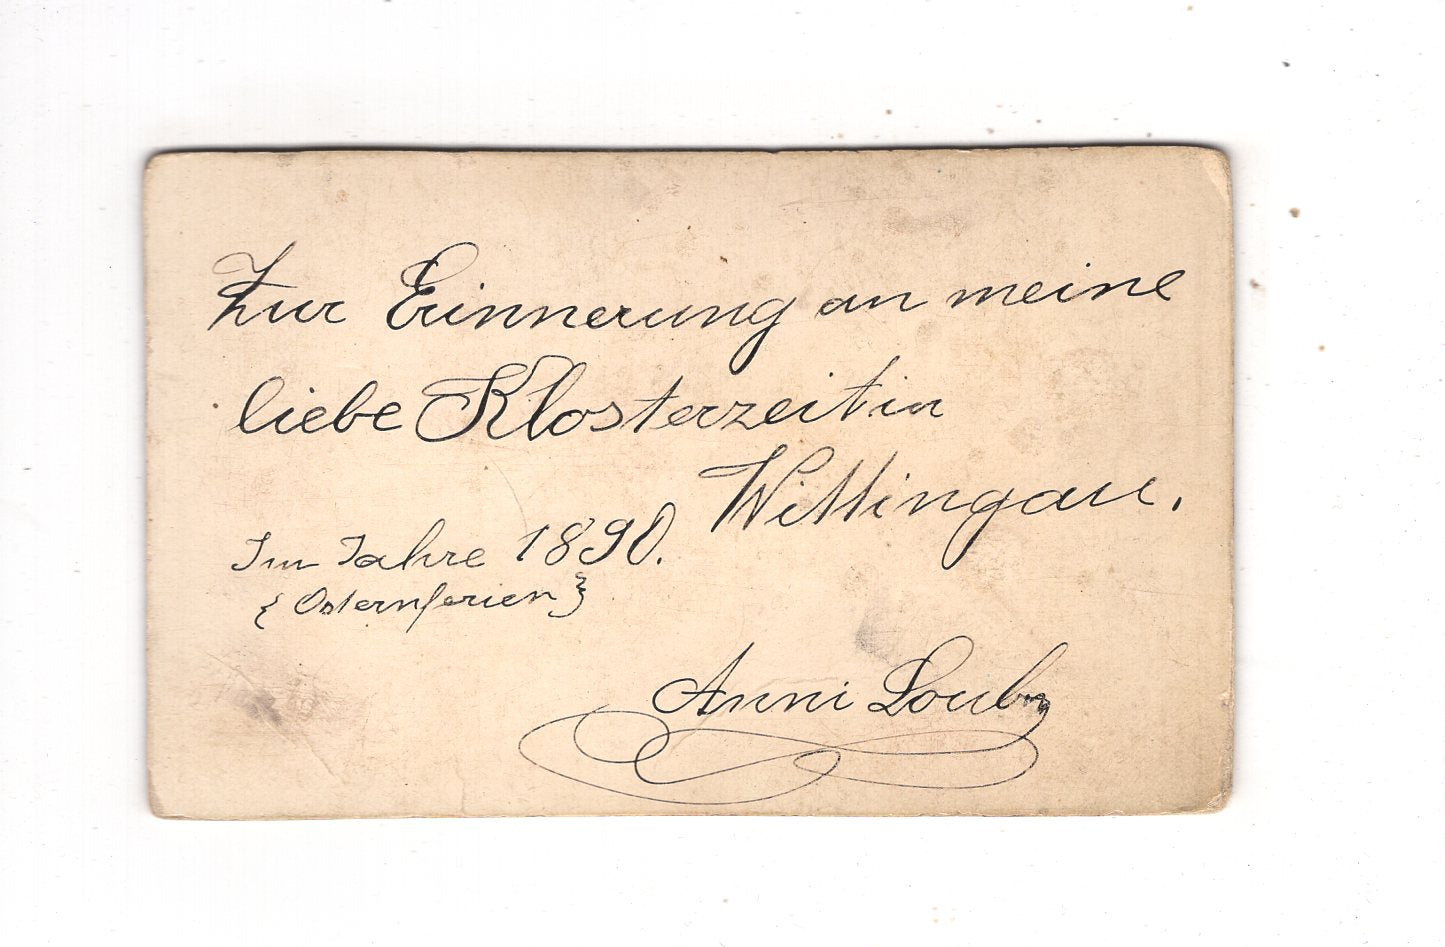 Zur Erinnerung an meine
liebe Klosterzeit in
Wittingau.
Im Jahre 1890.
{Osternferien}
Anni